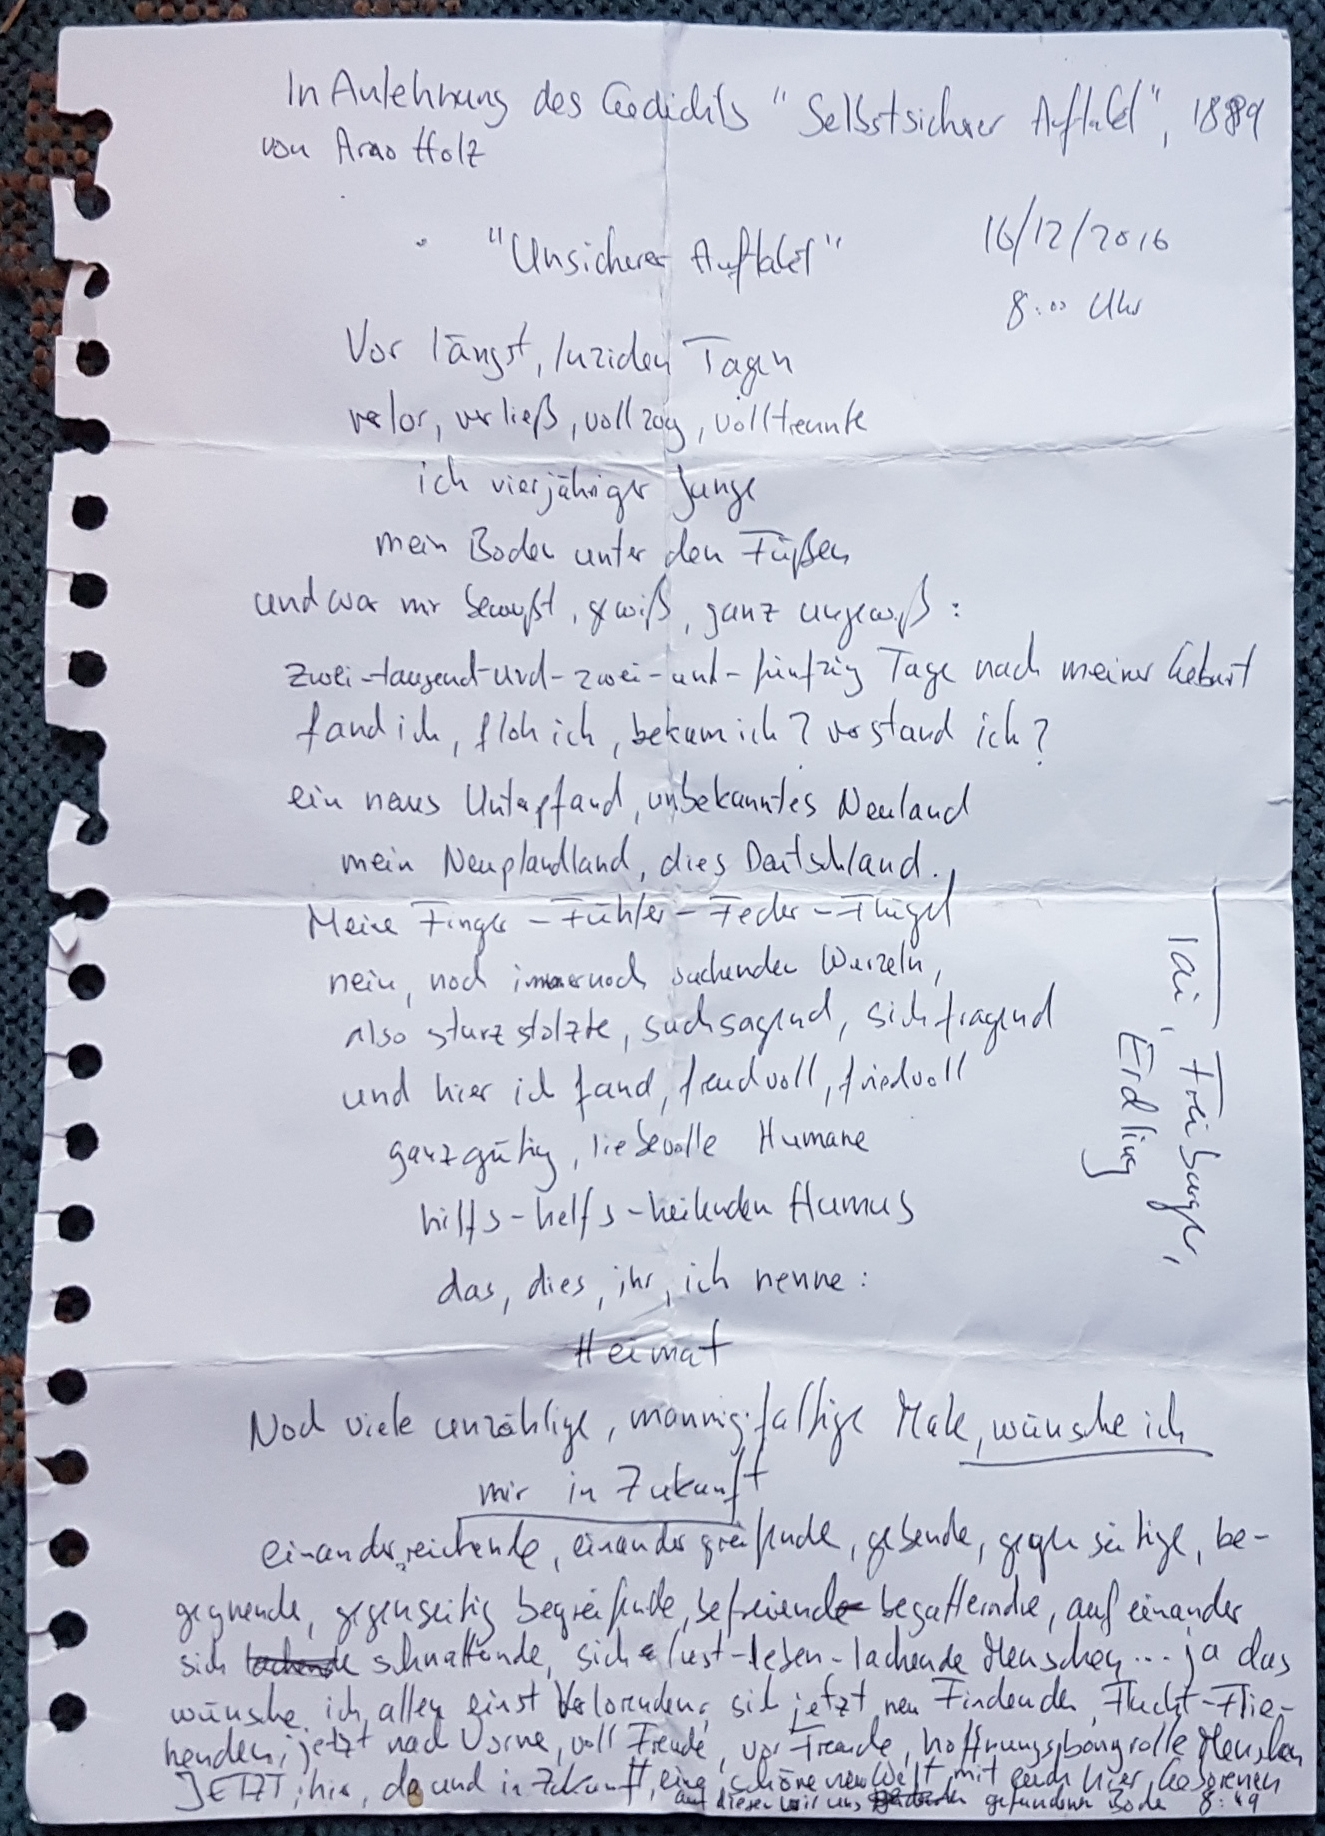 In Anlehnung des Gedichts "Selbstsicherer Auftakt", 1889
von Arno Holz
"Unsicherer Auftakt"
16/12/2016
8:00 Uhr
Vor längst, luziden Tagen
verlor, verließ, vollzog, volltrennte
ich vierjähriger Junge
mein Boden unter den Füßen
und war mir bewußt, gewiß, ganz ungewiß:
zwei-tausend-und-zwei-und-fünfzig Tage nach meiner Geburt
fand ich, floh ich, bekam ich? verstand ich?
ein neues Unterpfand, unbekanntes Neuland
mein Neuplandland, dies Deutschland.
Meine Finger-Fühler-Feder-Flügel
nein, noch immernoch suchenden Wurzeln,
also sturzstolzte, suchsagend, sichfragend
und hier ich fand, freudvoll, friedvoll
ganzgütig, liebevolle Humane
hilfs-helfs-heilenden Humus
das, dies, ihr, ich nenne:
Heimat
Noch viele unzählige, mannigfaltige Male, wünsche ich
mir in Zukunft
einanderreichende, einander greifende, gebende, gegenseitige, be-
gegnende, gegenseitig begreifende, befreiend begatternde, auf einander
sich schnatternde, sich lust-leben-lachende Menschen... ja das
wünsche ich allen einst Verlorenden, sich jetzt neu Findenden, Flucht-Flie-
henden, jetzt nach Vorne, voll Freude, vor Freude, hoffnungsbangvolle Menschen
JETZT, hier, da und in Zukunft, eine schöne neue Welt mit euch hier Geborenen
auf diesen wir uns gefundenen Boden 8:49
Tai, Freiburger,
Erdling